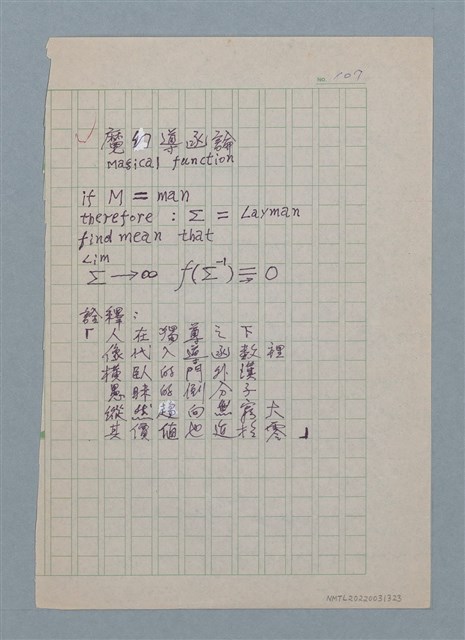 No. 107
魔幻導函論
Magical function
if M = man
therefore : Σ = Layman
find mean that
Lim
Σ → ∞ f(Σ⁻¹) ⇛ 0
詮釋:
「人在獨尊之下
像代入導函数裡
橫臥的門外漢
愚昧的倒分子
縱然趨向無窮大
其價值也近於零」
NMTL20220031323